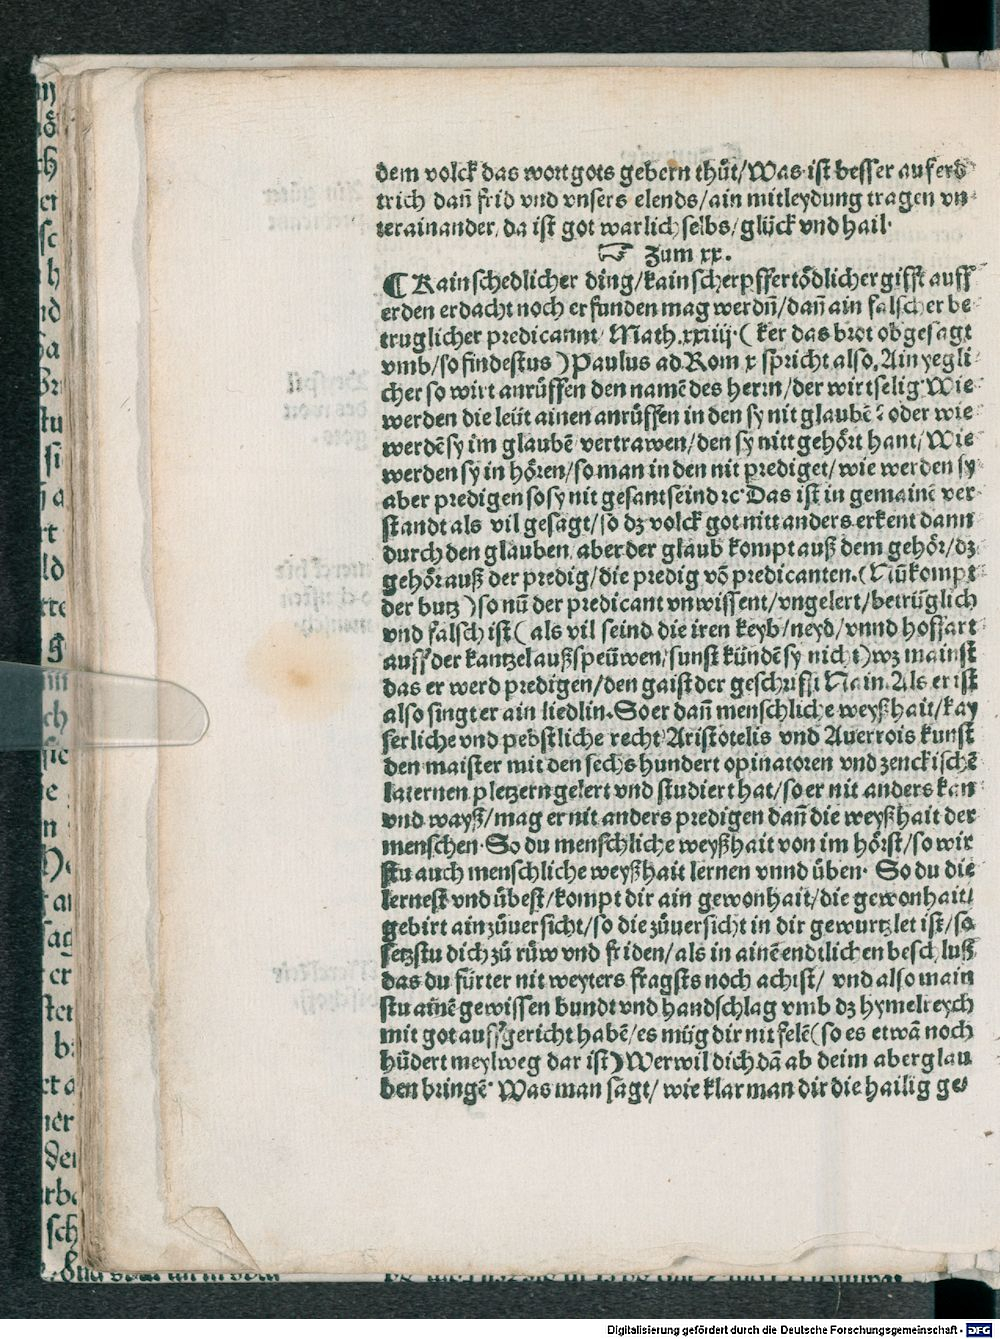 dem volck das wort gots gebern thůt/Was ist besser auf erd
trich dañ frid vnd vnsers elends/ain mitleydung tragen vn
terainander, da ist got warlich selbs/glück vnd hail·
☞ Zum xx.
¶ Kain schedlicher ding/kain scherpffer tödlicher gifft auff
erden erdacht noch erfunden mag werdn̄/dañ ain falscher be
truglicher predicannt/ Math.xxiiij·( ker das brot obgesagt
vmb/so findestus ) Paulus ad Rom x spricht also, Ain yegli
cher so wirt anrůffen den namē des herrn/der wirt selig· Wie
werden die leüt ainen anrůffen in den sy nit glaubē? oder wie
werdē sy im glaubē vertrawen/den sy nitt gehört hant/Wie
werden sy in hören/so man in den nit prediget/wie werden sy
aber predigen so sy nit gesant seind ꝛc· Das ist in gemainē ver
standt als vil gesagt/so dz volck got nitt anders erkent dann
durch den glauben, aber der glaub kompt auß dem gehör/dz
gehör auß der predig/die predig vō predicanten.(Nū kompt
der butz ) so nū der predicant vnwissent/vngelert/betrůglich
vnd falsch ist ( als vil seind die iren keyb/neyd/vnnd hoffart
auff der kantzel außspeüwen/sunst kündē sy nicht) wz mainst
das er werd predigen/den gaist der geschrifft Nain. Als er ist
also singt er ain liedlin. So er dañ menschliche weyßhait/kay
serliche vnd pebstliche recht Aristotelis vnd Auerrois kunst
den maister mit den sechs hundert opinatoren vnd zenckischē
laternen pletzern gelert vnd studiert hat/so er nit anders kan
vnd wayß/mag er nit anders predigen dañ die weyßhait der
menschen· So du menschliche weyßhait von im hörst/so wir
stu auch menschliche weyßhait lernen vnnd üben· So du die
lernest vnd übest/kompt dir ain gewonhait/die gewonhait
gebirt ain zůuersicht/so die zůuersicht in dir gewurtzlet ist/so
setzstu dich zů růw vnd friden/als in ainē endtlichen beschluß
das du fürter nit weyters fragsts noch achist/ vnd also main
stu ainē gewissen bundt vnd handschlag vmb dz hymelreych
mit got auffgericht habē/es müg dir nit felē (so es etwā noch
hūdert meyl weg dar ist) Wer wil dich dā ab deim aberglau
ben bringē· Was man sagt/ wie klar man dir die hailig ge
Digitalisierung gefördert durch die Deutsche Forschungsgemeinschaft - DFG